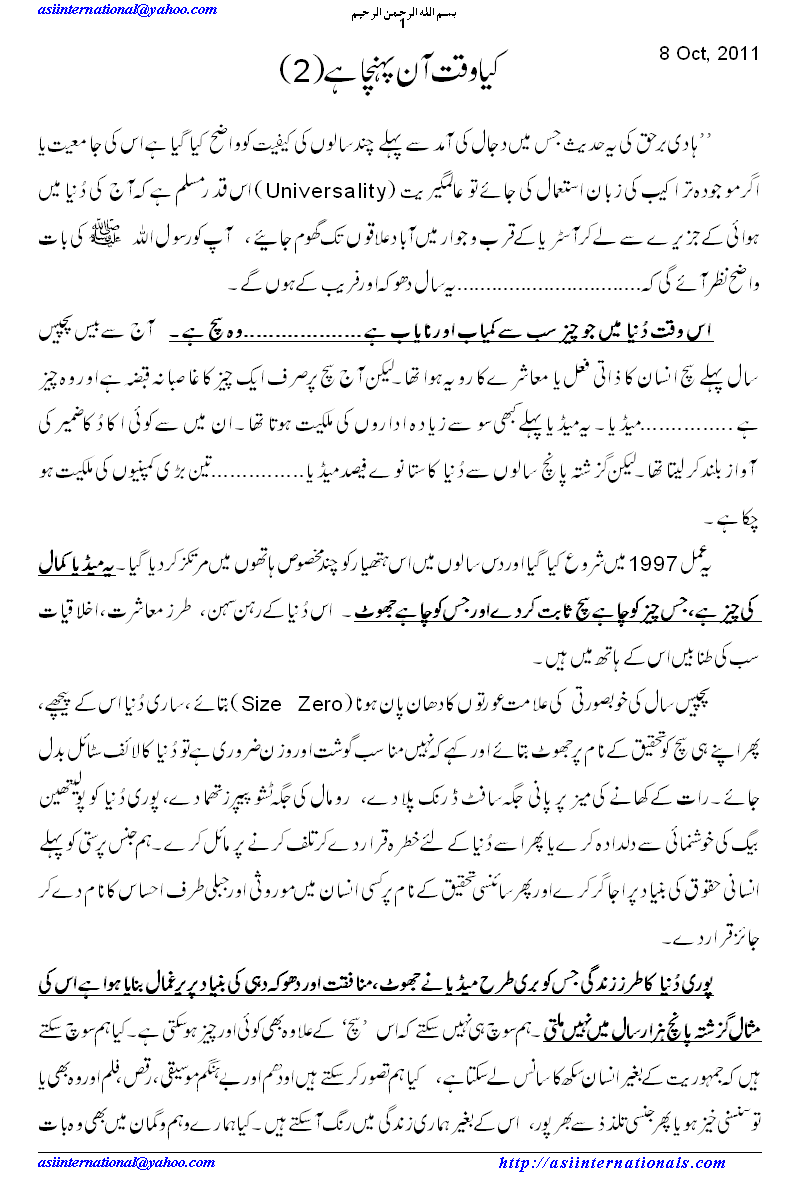 asiinternational@yahoo.com
بسم الله الرحمن الرحيم
1
8 Oct, 2011
کیا وقت آن پہنچا ہے (2)
’’ہادی برحق کی یہ حدیث جس میں دجال کی آمد سے پہلے چند سالوں کی کیفیت کو واضح کیا گیا ہے اس کی جامعیت یا
اگر موجودہ تراکیب کی زبان استعمال کی جائے تو عالمگیریت (Universality) اس قدر مسلم ہے کہ آج کی دُنیا میں
ہوائی کے جزیرے سے لے کر آسٹریا کے قرب و جوار میں آباد علاقوں تک گھوم جایئے، آپ کو رسول اللہ ﷺ کی بات
واضح نظر آئے گی کہ................................یہ سال دھوکہ اور فریب کے ہوں گے۔
اس وقت دُنیا میں جو چیز سب سے کمیاب اور نایاب ہے...................وہ سچ ہے۔ آج سے بیس پچیس
سال پہلے سچ انسان کا ذاتی فعل یا معاشرے کا رویہ ہوا تھا۔ لیکن آج سچ پر صرف ایک چیز کا غاصبانہ قبضہ ہے اور وہ چیز
ہے ...............میڈیا۔ یہ میڈیا پہلے کبھی سو سے زیادہ اداروں کی ملکیت ہوتا تھا۔ ان میں سے کوئی اکا دُکا ضمیر کی
آواز بلند کر لیتا تھا۔ لیکن گزشتہ پانچ سالوں سے دُنیا کا ستانوے فیصد میڈیا...............تین بڑی کمپنیوں کی ملکیت ہو
چکا ہے۔
یہ عمل 1997 میں شروع کیا گیا اور دس سالوں میں اس ہتھیار کو چند مخصوص ہاتھوں میں مرتکز کر دیا گیا۔ یہ میڈیا کمال
کی چیز ہے، جس چیز کو چاہے سچ ثابت کر دے اور جس کو چاہے جھوٹ۔ اس دُنیا کے رہن سہن، طرز معاشرت، اخلاقیات
سب کی طنابیں اس کے ہاتھ میں ہیں۔
پچیس سال کی خوبصورتی کی علامت عورتوں کا دھان پان ہونا (Size Zero) بتائے، ساری دُنیا اس کے پیچھے،
پھر اپنے ہی سچ کو تحقیق کے نام پر جھوٹ بتائے اور کہے کہ نہیں مناسب گوشت اور وزن ضروری ہے تو دُنیا کا لائف سٹائل بدل
جائے۔ رات کے کھانے کی میز پر پانی جگہ سافٹ ڈرنک پلا دے، رومال کی جگہ ٹشو پیپرز تھما دے، پوری دُنیا کو پولیتھین
بیگ کی خوشنمائی سے دلدادہ کرے یا پھر اسے دُنیا کے لئے خطرہ قرار دے کر تلف کرنے پر مائل کرے۔ ہم جنس پرستی کو پہلے
انسانی حقوق کی بنیاد پر اجاگر کرے اور پھر سائنسی تحقیق کے نام پر کسی انسان میں موروثی اور جبلی طرف احساس کا نام دے کر
جائز قرار دے۔
پوری دُنیا کا طرز زندگی جس کو بری طرح میڈیا نے جھوٹ، منافقت اور دھوکہ دہی کی بنیاد پر یرغمال بنایا ہوا ہے اس کی
مثال گزشتہ پانچ ہزار سال میں نہیں ملتی۔ ہم سوچ ہی نہیں سکتے کہ اس ’سچ‘ کے علاوہ بھی کوئی اور چیز ہو سکتی ہے۔ کیا ہم سوچ سکتے
ہیں کہ جمہوریت کے بغیر انسان سکھ کا سانس لے سکتا ہے، کیا ہم تصور کر سکتے ہیں اودھم اور بے ہنگم موسیقی، رقص، فلم اور وہ بھی یا
تو سنسنی خیز ہو یا پھر جنسی تلذذ سے بھرپور، اس کے بغیر ہماری زندگی میں رنگ آ سکتے ہیں۔ کیا ہمارے وہم و گمان میں بھی وہ بات
asiinternational@yahoo.com
http://asiinternationals.com